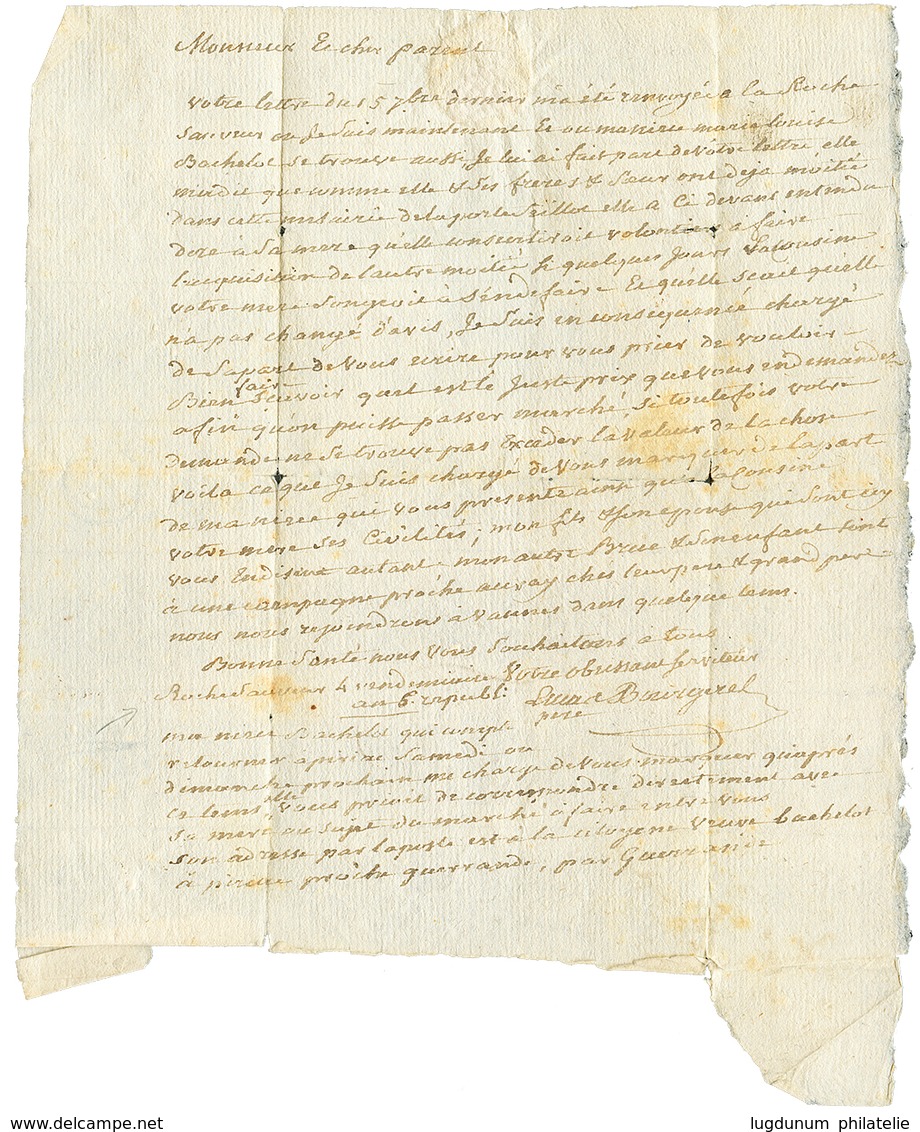 Monsieur Et cher parent
votre lettre du 15 7bre dernier m'a été renvoyée a la Roche
Sauveur ou Je suis maintenant Et ou ma niece marie louise
Bachelot se trouve aussi, Je lui ai fait part de votre lettre elle
m'a dit que comme elle & ses freres & Sœur ont deja moitié
dans cette métairie de la porte elle a Ci devant entendu
dire à Sa mere qu'elle consentiroit volontiers a faire
l'acquisition de l'autre moitié Si quelques Jours la Cousine
votre mere Songeoit à S'en defaire Et qu'elle scait qu'elle
n'a pas changé d'avis, Je Suis en conséquence chargé
de Sa part de vous ecrire pour vous prier de vouloir
Bien faire scavoir quel est le Juste prix que vous en demandez
afin qu'on puisse passer marché, Si toutefois votre
demande ne Se trouve pas Excéder la valeur de la chose
voila ce que Je Suis chargé de vous marquer de la part
de ma niece qui vous presente ainsi qu'a la Cousine
votre mere Ses Civilités; mon fils & Son epouse qui Sont icy
vous En disent autant. mon autre Brue & Son enfant Sont
à une campagne proche auray ches leur pere & grand pere
nous nous rejoindrons à vannes dans quelque tems.
Bonne Santé nous vous Souhaitons à tous
Roche Sauveur 4 vendemiaire Votre obeissant Serviteur
an 6 republi: Bourgerel
pere
ma niece Bachelot qui compte
retourner a piriac Samedi ou
dimanche prochain me charge de vous marquer qu'après
ce tems elle vous prioit de correspondre directement avec
Sa mere au sujet du marché à faire entre vous
Son adresse par la poste est à la citoyene veuve bachelot
à piriac proche guerrande, par Guerrande
lugdunum philatelie
www.delcampe.net